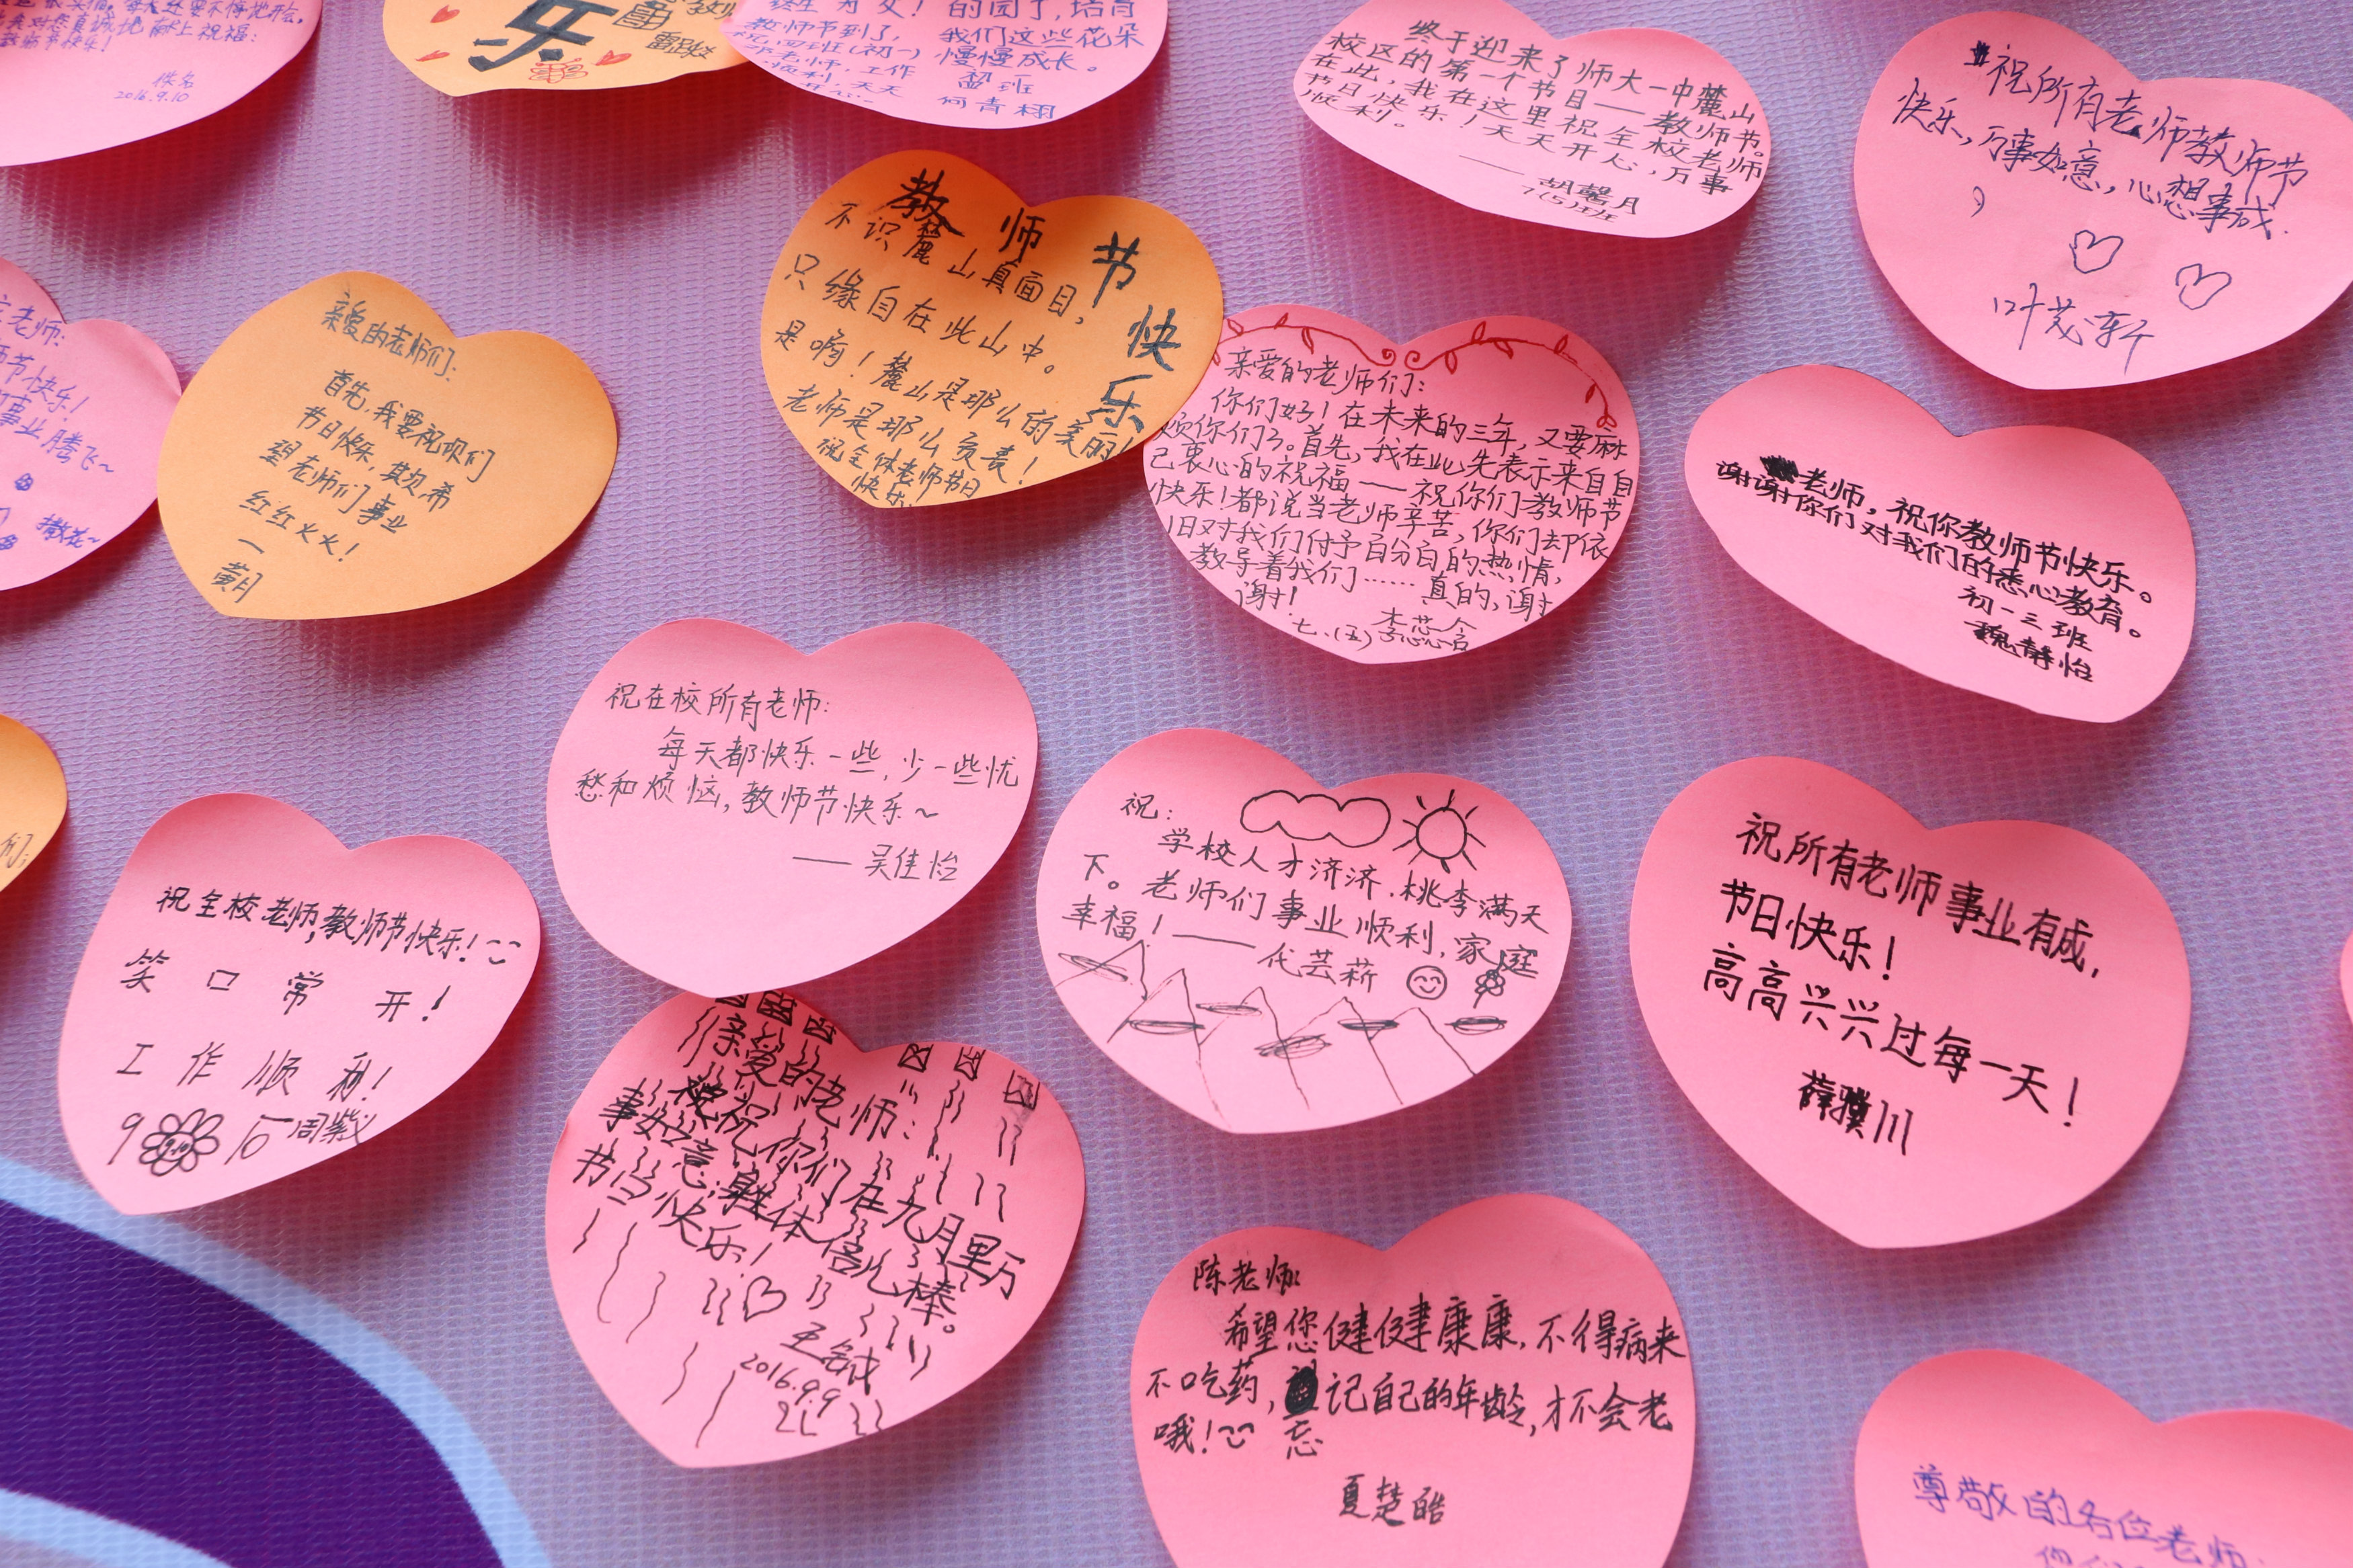 2016.9.10
乐
教师节到了,
我们这些花朵
慢慢成长。
终于迎来了师大一中麓山
校区的第一个节日——教师节。
在此,我在这里祝全校老师
节日快乐!天天开心,万事
顺利。
——胡馨月
7(5)班
祝所有老师教师节
快乐,万事如意,心想事成.
教师节快乐
不识麓山真面目,
只缘自在此山中。
是啊!麓山是那么的美丽!
老师是那么负责!
祝全体老师节日
快乐
老师:
师节快乐!
事业腾飞~
撒花~
亲爱的老师们:
首先,我要祝你们
节日快乐,其次,希
望老师们事业
红红火火!
亲爱的老师们:
你们好!在未来的三年,又要麻
烦你们了。首先,我在此先表示来自自
己衷心的祝福——祝你们教师节
快乐!都说当老师辛苦,你们却依
旧对我们付予百分百的热情,
教导着我们……真的,谢
谢!
七.(五)
老师,祝你教师节快乐。
谢谢你们对我们的悉心教育。
初一三班
魏静怡
祝在校所有老师:
每天都快乐一些,少一些忧
愁和烦恼,教师节快乐~
——吴佳怡
祝:
学校人才济济,桃李满天
下。老师们事业顺利,家庭
幸福!——代芸菥
祝所有老师事业有成,
节日快乐!
高高兴兴过每一天!
薛骥川
们:
祝全校老师,教师节快乐!
笑口常开!
工作顺利!
亲爱的老师:
祝你们在九月里万
事如意,身体倍儿棒。
节日快乐!
2016.9.9
陈老师:
希望您健健康康,不得病来
不吃药,忘记自己的年龄,才不会老
哦!
夏楚皓
尊敬的各位老师